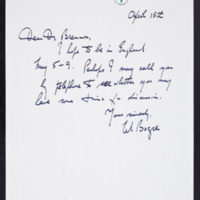 April 18th
Dear Dr Brenner,
I hope to be in England
May 5-9. Perhaps I may call you
by telephone to see whether you may
have some time for discussion.
Yours sincerely,
W. Bogre